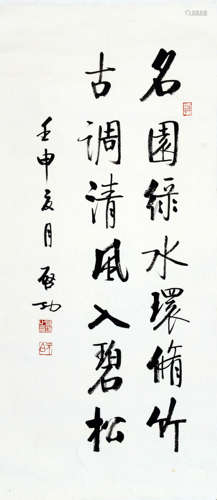 名園綠水環脩竹
古調清風入碧松
壬申夏月 啟功